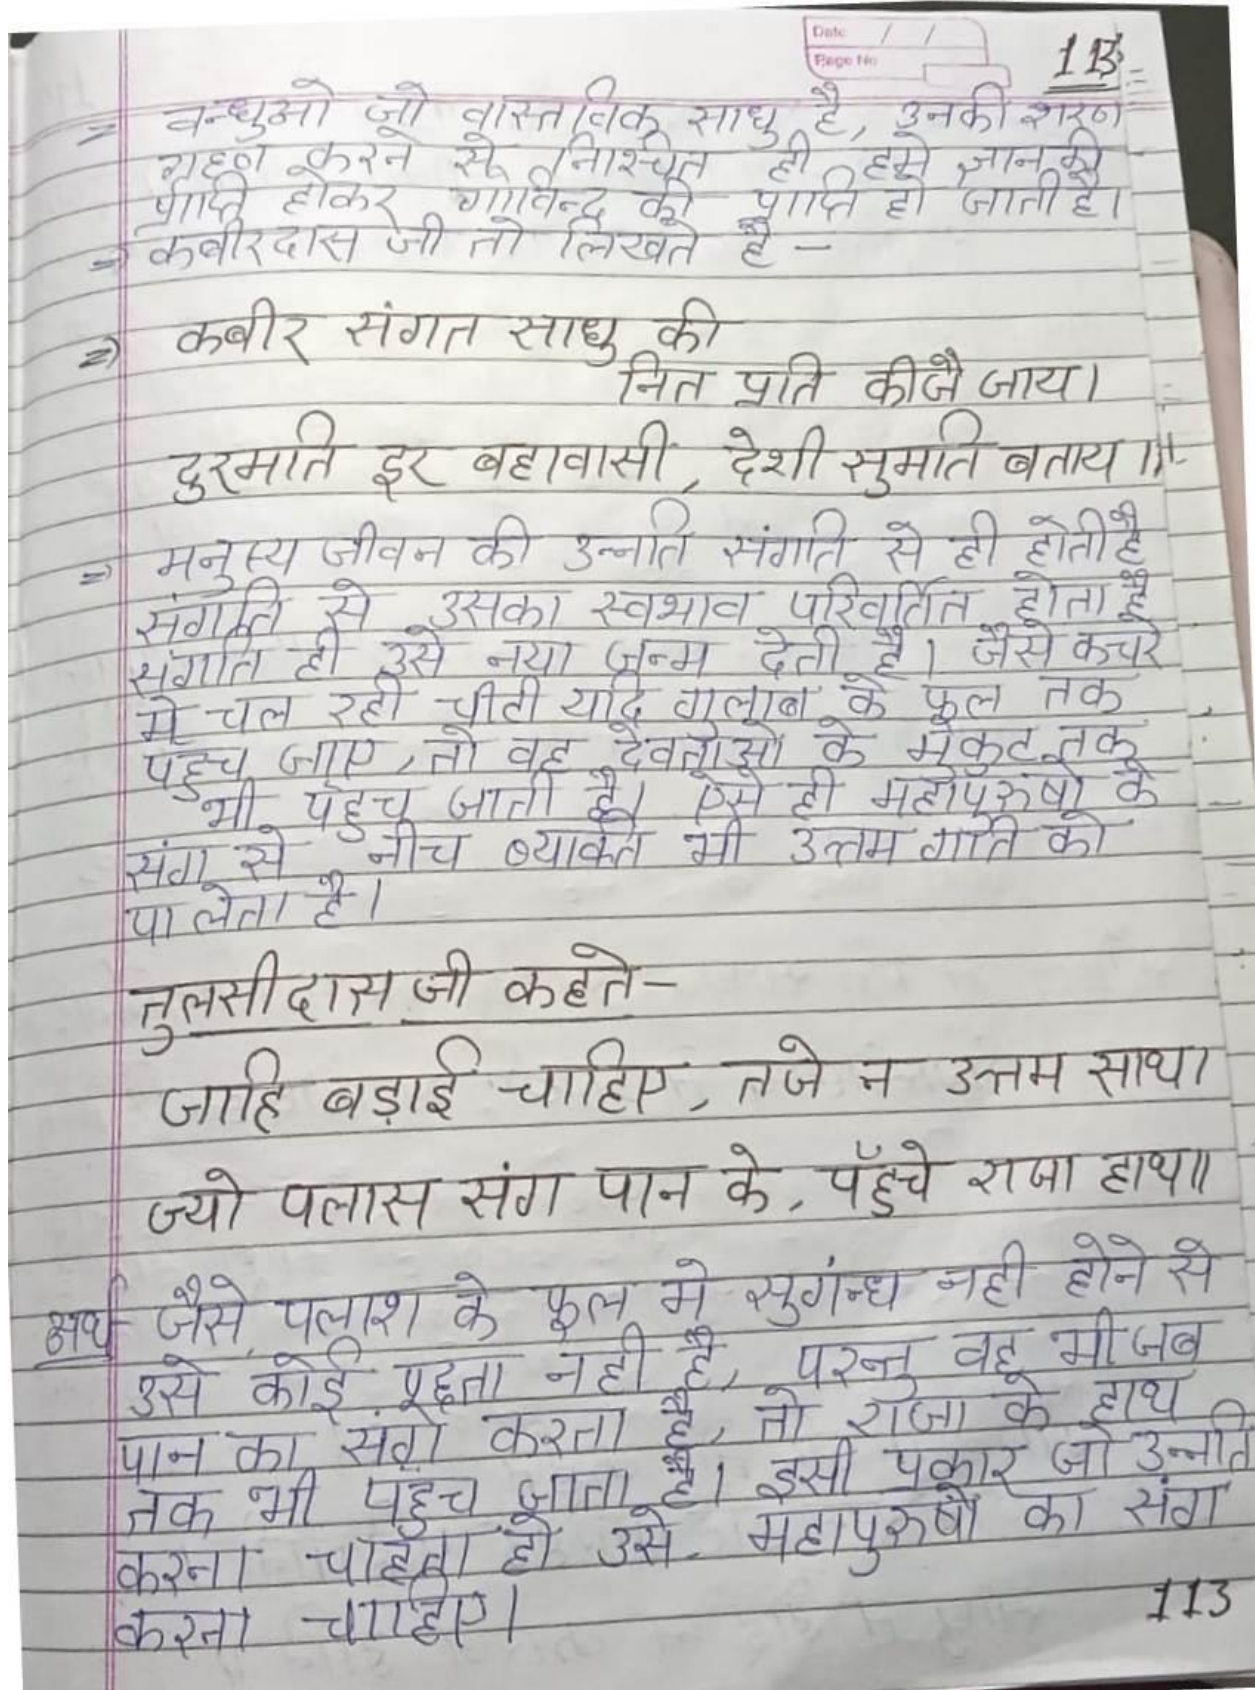 Date / /
Page No
113
= बन्धुओ जो वास्तविक साधु है, उनकी शरण
ग्रहण करने से निश्चित ही हमे ज्ञान की
प्राप्ति होकर गोविन्द की प्राप्ति हो जाती है।
=> कबीरदास जी तो लिखते है -
=> कबीर संगत साधु की
नित प्रति कीजै जाय।
दुरमति दूर बहावासी, देशी सुमति बताय ॥
=> मनुष्य जीवन की उन्नति संगति से ही होती है
संगति से उसका स्वभाव परिवर्तित होता है
संगति ही उसे नया जन्म देती है। जैसे कचरे
मे चल रही चीटी यदि गुलाब के फूल तक
पहुच जाए, तो वह देवताओ के मुकुट तक
भी पहुच जाती है। ऐसे ही महापुरुषो के
संग से नीच व्यक्ति भी उत्तम गति को
पा लेता है।
तुलसीदास जी कहते-
जाहि बड़ाई चाहिए, तजे न उत्तम साथ।
ज्यो पलास संग पान के, पँहुचे राजा हाथ॥
अर्थ जैसे, पलाश के फूल मे सुगंन्ध नही होने से
उसे कोई पूछता नही है, परन्तु वह भी जब
पान का संग करता है, तो राजा के हाथ
तक भी पहुच जाता है। इसी प्रकार जो उन्नति
करना चाहता हो उसे महापुरुषो का संग
करना चाहिए।
113